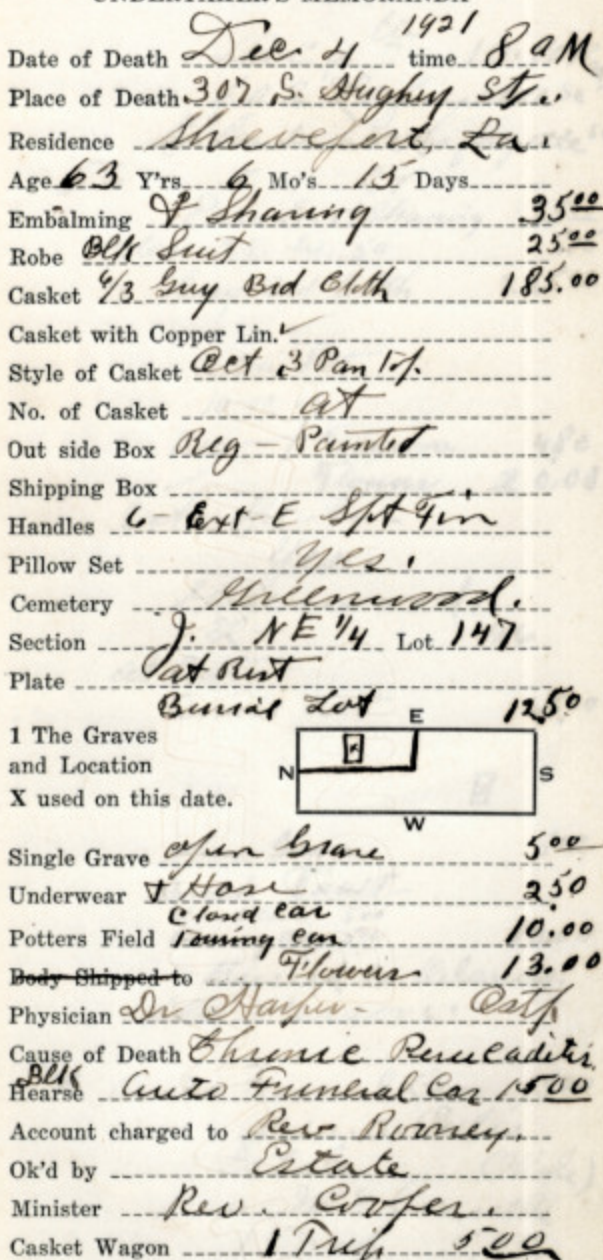 UNDERTAKER'S MEMORANDA
1921
Date of Death Dec. 4 time 8 a M
Place of Death 307 S. Hughey St.
Residence Shreveport, La.
Age 63 Y'rs 6 Mo's 15 Days
Embalming & Shaving 35 00
Robe Blk Suit 25 00
Casket 6/3 Gray Brd Cloth 185.00
Casket with Copper Lin.
Style of Casket Oct 3 Pan
No. of Casket at
Out side Box Reg - Painted
Shipping Box
Handles 6 - Ext - E
Pillow Set Yes.
Cemetery Greenwood.
Section J. NE 1/4 Lot 147
Plate at Rest
Burial Lot 12 50
E
1 The Graves
and Location
X used on this date.
N
x
S
W
Single Grave open Grave 5 00
Underwear & Hose 2 50
Closed Car
Potters Field Touring Car 10.00
Body Shipped to Flowers 13.00
Physician Dr Harper -
Cause of Death Chronic
Blk
Hearse Auto Funeral Car 15 00
Account charged to Rev
Ok'd by Estate
Minister Rev. Cooper.
Casket Wagon 1 Trip 5 00